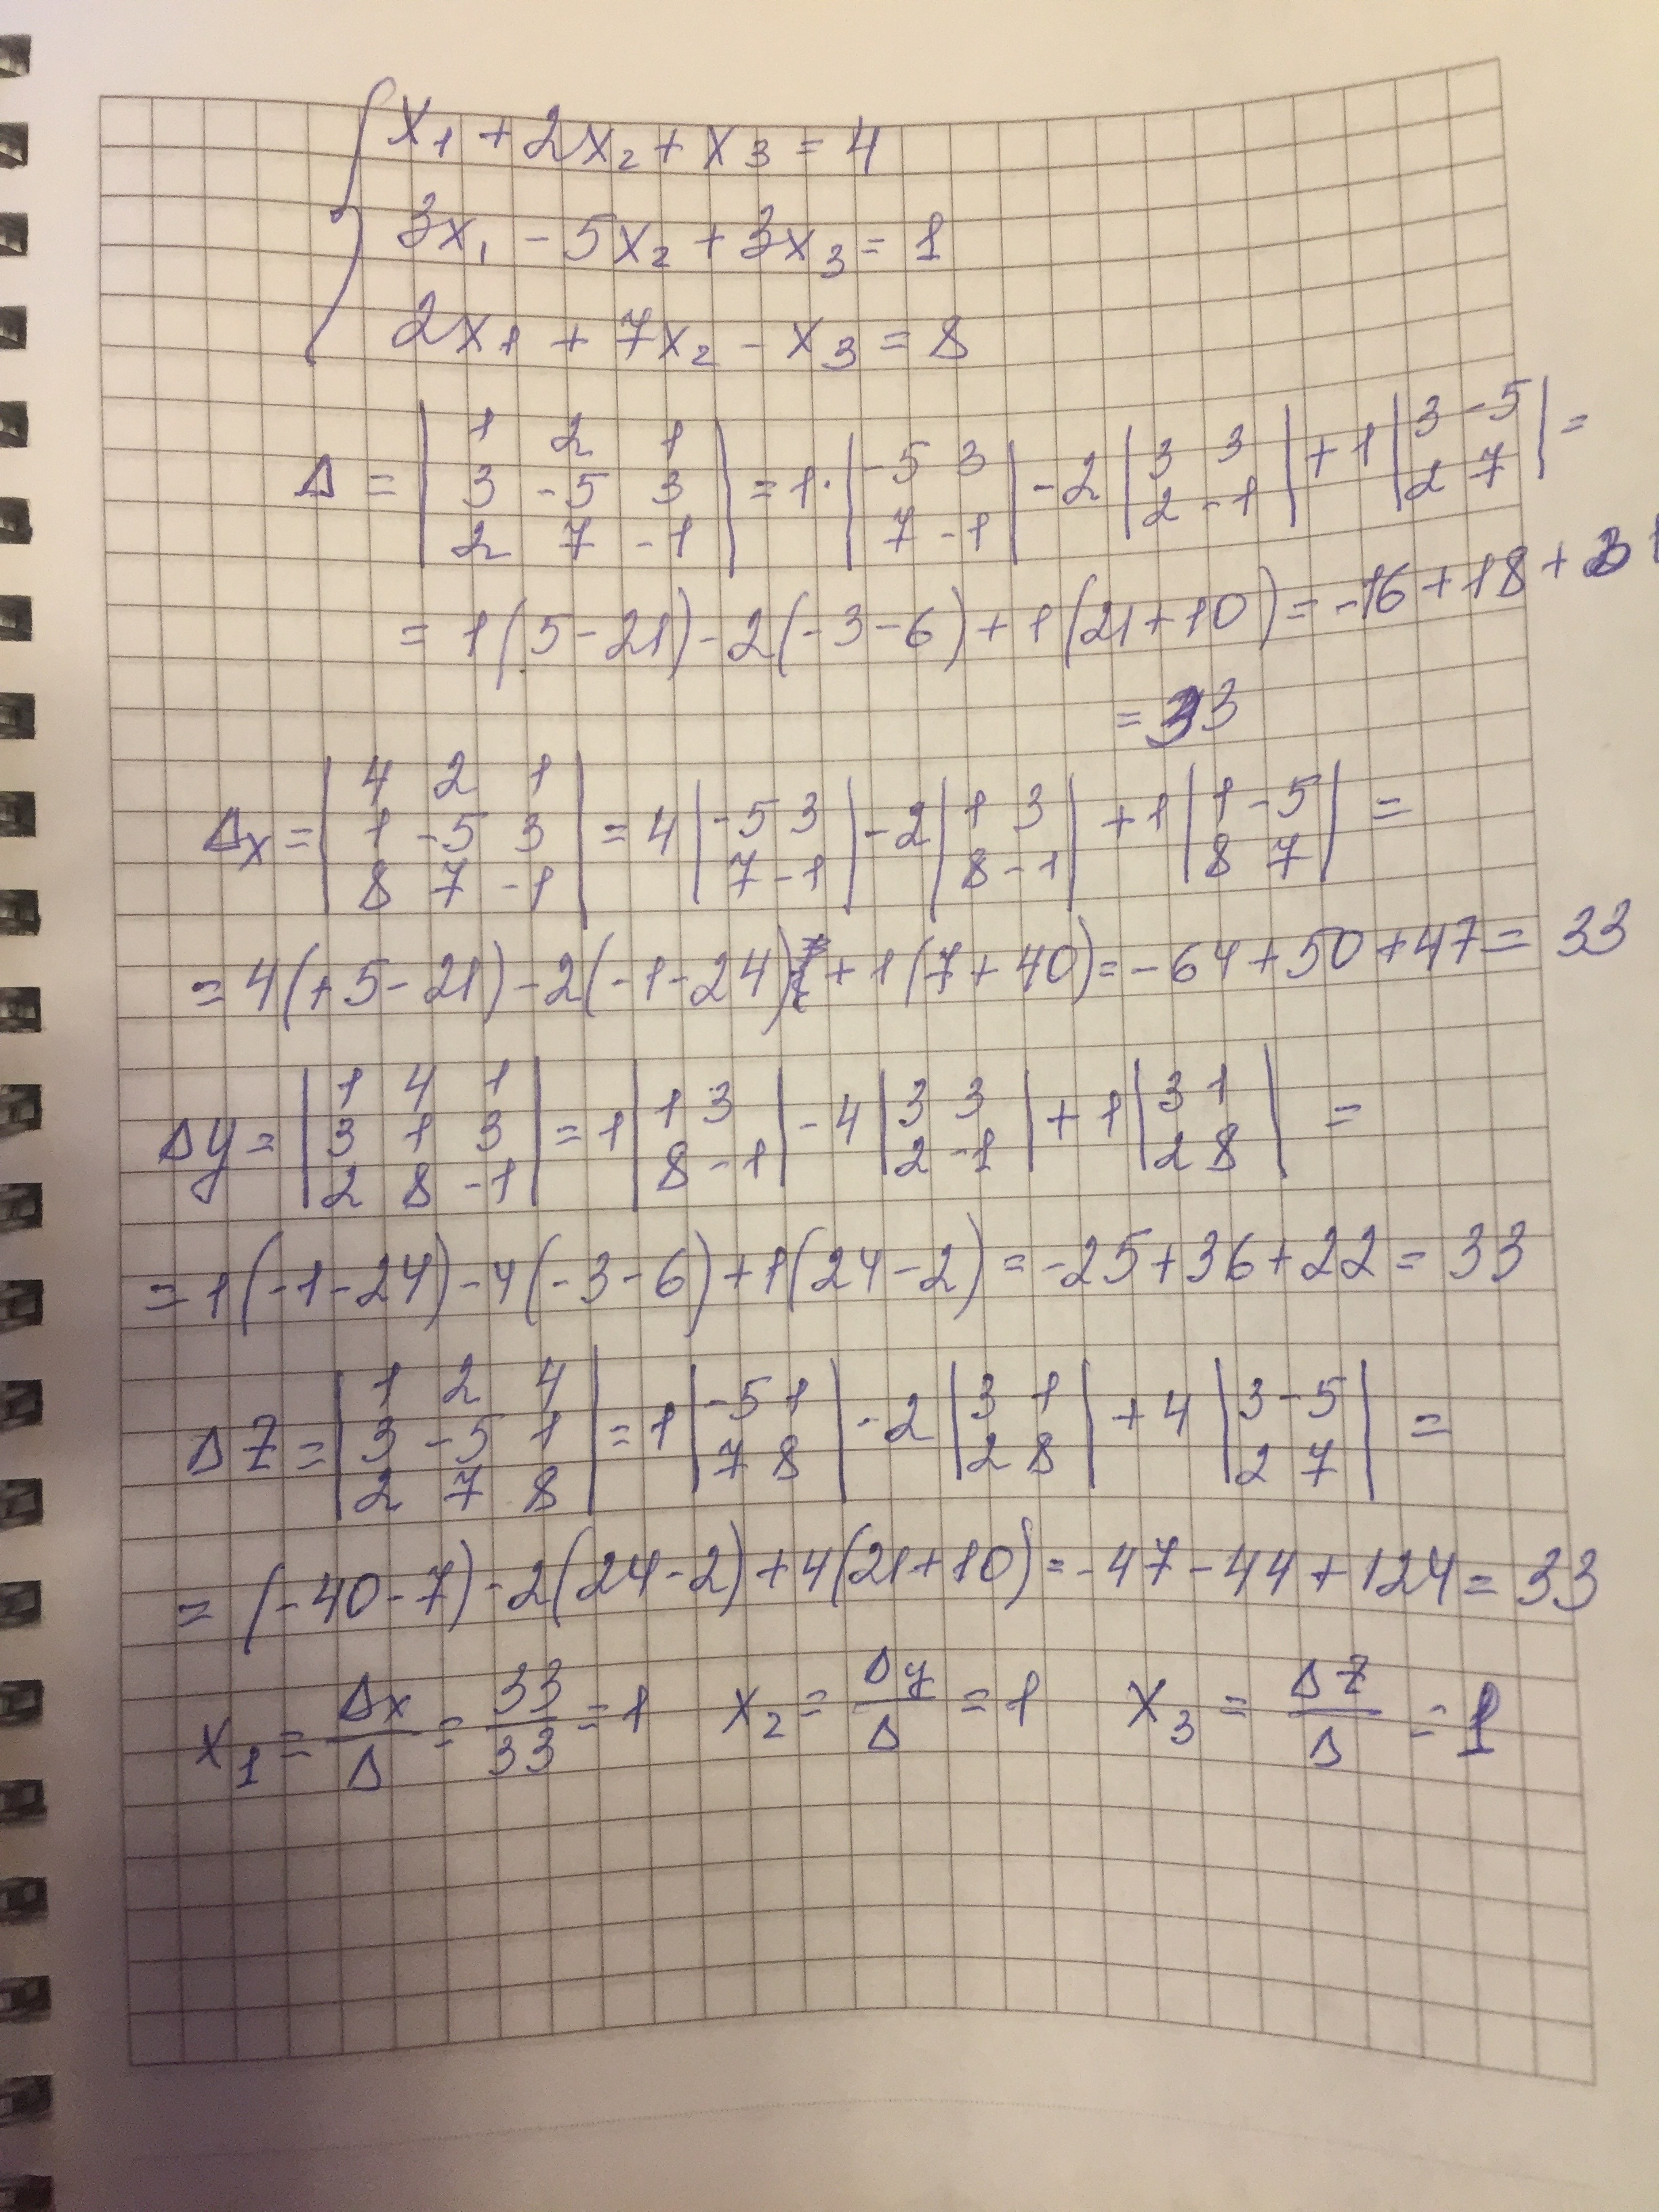 x₁ + 2x₂ + x₃ = 4
3x₁ - 5x₂ + 3x₃ = 1
2x₁ + 7x₂ - x₃ = 8
Δ = | 1 2 1 ; 3 -5 3 ; 2 7 -1 | = 1· | -5 3 ; 7 -1 | - 2 | 3 3 ; 2 -1 | + 1 | 3 -5 ; 2 7 | =
= 1(5-21) - 2(-3-6) + 1(21+10) = -16 + 18 + 31
= 33
Δx = | 4 2 1 ; 1 -5 3 ; 8 7 -1 | = 4 | -5 3 ; 7 -1 | - 2 | 1 3 ; 8 -1 | + 1 | 1 -5 ; 8 7 | =
= 4(+5-21) - 2(-1-24) + 1(7+40) = -64 + 50 + 47 = 33
Δy = | 1 4 1 ; 3 1 3 ; 2 8 -1 | = 1 | 1 3 ; 8 -1 | - 4 | 3 3 ; 2 -1 | + 1 | 3 1 ; 2 8 | =
= 1(-1-24) - 4(-3-6) + 1(24-2) = -25 + 36 + 22 = 33
Δz = | 1 2 4 ; 3 -5 1 ; 2 7 8 | = 1 | -5 1 ; 7 8 | - 2 | 3 1 ; 2 8 | + 4 | 3 -5 ; 2 7 | =
= (-40-7) - 2(24-2) + 4(21+10) = -47 - 44 + 124 = 33
x₁ = Δx/Δ = 33/33 = 1 x₂ = Δy/Δ = 1 x₃ = Δz/Δ = 1